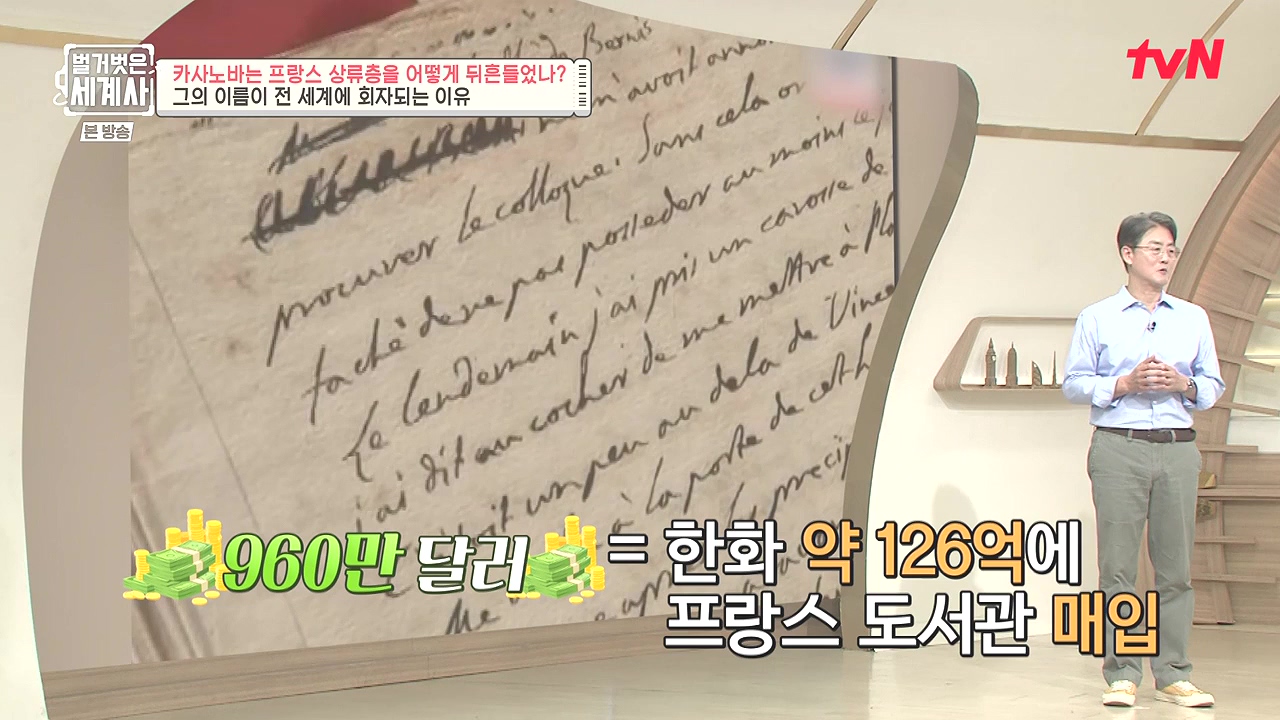 벌거벗은
세계사
본 방송
카사노바는 프랑스 상류층을 어떻게 뒤흔들었나?
그의 이름이 전 세계에 회자되는 이유
tvN
de Bernis
avoit
prouver le colloque. Sans cela on
faché de ne pas posseder au moins le
Le lendemain j'ai pris un carosse de
j'ai dit au cocher de me mettre à
un peu au dela de
à la porte de cet
960만 달러 = 한화 약 126억에
프랑스 도서관 매입